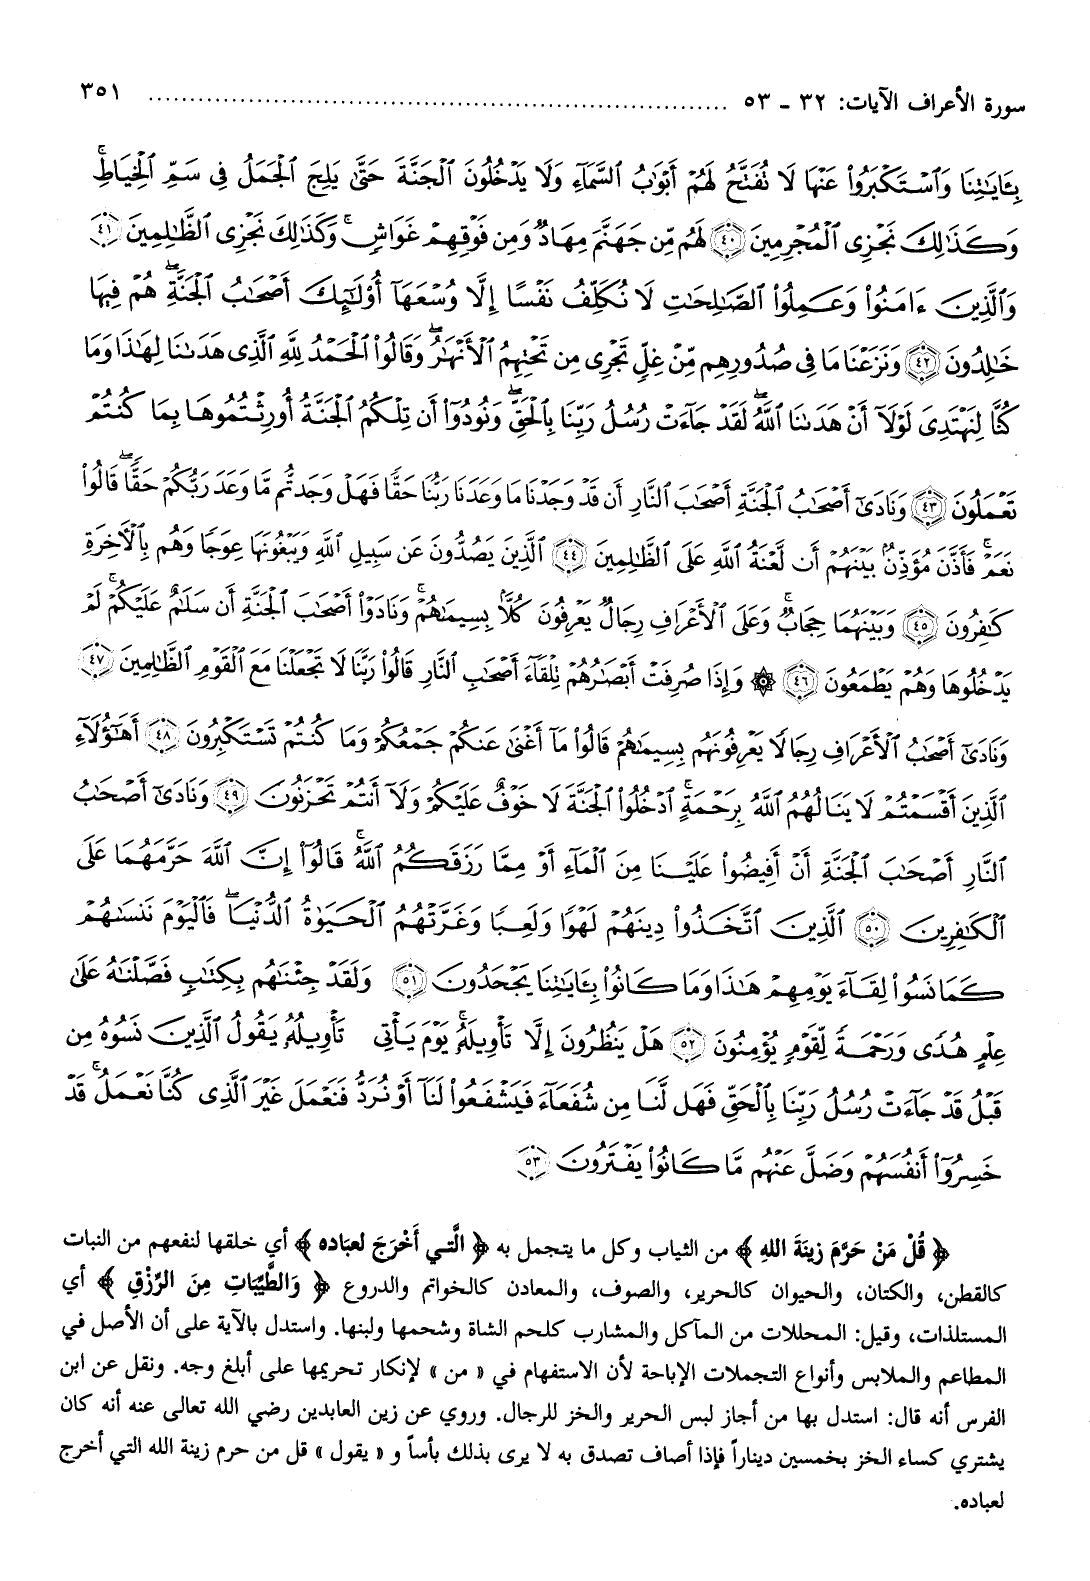 سورة الأعراف الآيات: ٣٢ - ٥٣ ........................................................................ ٣٥١
بِـَٔايَٰتِنَا وَٱسْتَكْبَرُوا۟ عَنْهَا لَا تُفَتَّحُ لَهُمْ أَبْوَٰبُ ٱلسَّمَآءِ وَلَا يَدْخُلُونَ ٱلْجَنَّةَ حَتَّىٰ يَلِجَ ٱلْجَمَلُ فِى سَمِّ ٱلْخِيَاطِ ۚ
وَكَذَٰلِكَ نَجْزِى ٱلْمُجْرِمِينَ ﴿٤٠﴾ لَهُم مِّن جَهَنَّمَ مِهَادٌ وَمِن فَوْقِهِمْ غَوَاشٍ ۚ وَكَذَٰلِكَ نَجْزِى ٱلظَّٰلِمِينَ ﴿٤١﴾
وَٱلَّذِينَ ءَامَنُوا۟ وَعَمِلُوا۟ ٱلصَّٰلِحَٰتِ لَا نُكَلِّفُ نَفْسًا إِلَّا وُسْعَهَآ أُو۟لَٰٓئِكَ أَصْحَٰبُ ٱلْجَنَّةِ ۖ هُمْ فِيهَا
خَٰلِدُونَ ﴿٤٢﴾ وَنَزَعْنَا مَا فِى صُدُورِهِم مِّنْ غِلٍّ تَجْرِى مِن تَحْتِهِمُ ٱلْأَنْهَٰرُ ۖ وَقَالُوا۟ ٱلْحَمْدُ لِلَّهِ ٱلَّذِى هَدَىٰنَا لِهَٰذَا وَمَا
كُنَّا لِنَهْتَدِىَ لَوْلَآ أَنْ هَدَىٰنَا ٱللَّهُ ۖ لَقَدْ جَآءَتْ رُسُلُ رَبِّنَا بِٱلْحَقِّ ۖ وَنُودُوٓا۟ أَن تِلْكُمُ ٱلْجَنَّةُ أُورِثْتُمُوهَا بِمَا كُنتُمْ
تَعْمَلُونَ ﴿٤٣﴾ وَنَادَىٰٓ أَصْحَٰبُ ٱلْجَنَّةِ أَصْحَٰبَ ٱلنَّارِ أَن قَدْ وَجَدْنَا مَا وَعَدَنَا رَبُّنَا حَقًّا فَهَلْ وَجَدتُّم مَّا وَعَدَ رَبُّكُمْ حَقًّا ۖ قَالُوا۟
نَعَمْ ۚ فَأَذَّنَ مُؤَذِّنٌۢ بَيْنَهُمْ أَن لَّعْنَةُ ٱللَّهِ عَلَى ٱلظَّٰلِمِينَ ﴿٤٤﴾ ٱلَّذِينَ يَصُدُّونَ عَن سَبِيلِ ٱللَّهِ وَيَبْغُونَهَا عِوَجًا وَهُم بِٱلْـَٔاخِرَةِ
كَٰفِرُونَ ﴿٤٥﴾ وَبَيْنَهُمَا حِجَابٌ ۚ وَعَلَى ٱلْأَعْرَافِ رِجَالٌ يَعْرِفُونَ كُلًّۢا بِسِيمَىٰهُمْ ۚ وَنَادَوْا۟ أَصْحَٰبَ ٱلْجَنَّةِ أَن سَلَٰمٌ عَلَيْكُمْ ۚ لَمْ
يَدْخُلُوهَا وَهُمْ يَطْمَعُونَ ﴿٤٦﴾ ۞ وَإِذَا صُرِفَتْ أَبْصَٰرُهُمْ تِلْقَآءَ أَصْحَٰبِ ٱلنَّارِ قَالُوا۟ رَبَّنَا لَا تَجْعَلْنَا مَعَ ٱلْقَوْمِ ٱلظَّٰلِمِينَ ﴿٤٧﴾
وَنَادَىٰٓ أَصْحَٰبُ ٱلْأَعْرَافِ رِجَالًا يَعْرِفُونَهُم بِسِيمَىٰهُمْ قَالُوا۟ مَآ أَغْنَىٰ عَنكُمْ جَمْعُكُمْ وَمَا كُنتُمْ تَسْتَكْبِرُونَ ﴿٤٨﴾ أَهَٰٓؤُلَآءِ
ٱلَّذِينَ أَقْسَمْتُمْ لَا يَنَالُهُمُ ٱللَّهُ بِرَحْمَةٍ ۚ ٱدْخُلُوا۟ ٱلْجَنَّةَ لَا خَوْفٌ عَلَيْكُمْ وَلَآ أَنتُمْ تَحْزَنُونَ ﴿٤٩﴾ وَنَادَىٰٓ أَصْحَٰبُ
ٱلنَّارِ أَصْحَٰبَ ٱلْجَنَّةِ أَنْ أَفِيضُوا۟ عَلَيْنَا مِنَ ٱلْمَآءِ أَوْ مِمَّا رَزَقَكُمُ ٱللَّهُ ۚ قَالُوٓا۟ إِنَّ ٱللَّهَ حَرَّمَهُمَا عَلَى
ٱلْكَٰفِرِينَ ﴿٥٠﴾ ٱلَّذِينَ ٱتَّخَذُوا۟ دِينَهُمْ لَهْوًا وَلَعِبًا وَغَرَّتْهُمُ ٱلْحَيَوٰةُ ٱلدُّنْيَا ۖ فَٱلْيَوْمَ نَنسَىٰهُمْ
كَمَا نَسُوا۟ لِقَآءَ يَوْمِهِمْ هَٰذَا وَمَا كَانُوا۟ بِـَٔايَٰتِنَا يَجْحَدُونَ ﴿٥١﴾ وَلَقَدْ جِئْنَٰهُم بِكِتَٰبٍ فَصَّلْنَٰهُ عَلَىٰ
عِلْمٍ هُدًى وَرَحْمَةً لِّقَوْمٍ يُؤْمِنُونَ ﴿٥٢﴾ هَلْ يَنظُرُونَ إِلَّا تَأْوِيلَهُۥ ۚ يَوْمَ يَأْتِى تَأْوِيلُهُۥ يَقُولُ ٱلَّذِينَ نَسُوهُ مِن
قَبْلُ قَدْ جَآءَتْ رُسُلُ رَبِّنَا بِٱلْحَقِّ فَهَل لَّنَا مِن شُفَعَآءَ فَيَشْفَعُوا۟ لَنَآ أَوْ نُرَدُّ فَنَعْمَلَ غَيْرَ ٱلَّذِى كُنَّا نَعْمَلُ ۚ قَدْ
خَسِرُوٓا۟ أَنفُسَهُمْ وَضَلَّ عَنْهُم مَّا كَانُوا۟ يَفْتَرُونَ ﴿٥٣﴾
﴿ قُلْ مَنْ حَرَّمَ زِينَةَ اللهِ ﴾ من الثياب وكل ما يتجمل به ﴿ الَّتي أَخْرَجَ لعبَاده ﴾ أي خلقها لنفعهم من النبات
كالقطن، والكتان، والحيوان كالحرير، والصوف، والمعادن كالخواتم والدروع ﴿ وَالطَّيِّبَاتِ مِنَ الرِّزْقِ ﴾ أي
المستلذات، وقيل: المحللات من المآكل والمشارب كلحم الشاة وشحمها ولبنها. واستدل بالآية على أن الأصل في
المطاعم والملابس وأنواع التجملات الإباحة لأن الاستفهام في « من » لإنكار تحريمها على أبلغ وجه. ونقل عن ابن
الفرس أنه قال: استدل بها من أجاز لبس الحرير والخز للرجال. وروي عن زين العابدين رضي الله تعالى عنه أنه كان
يشتري كساء الخز بخمسين ديناراً فإذا أصاف تصدق به لا يرى بذلك بأساً و « يقول » قل من حرم زينة الله التي أخرج
لعباده.